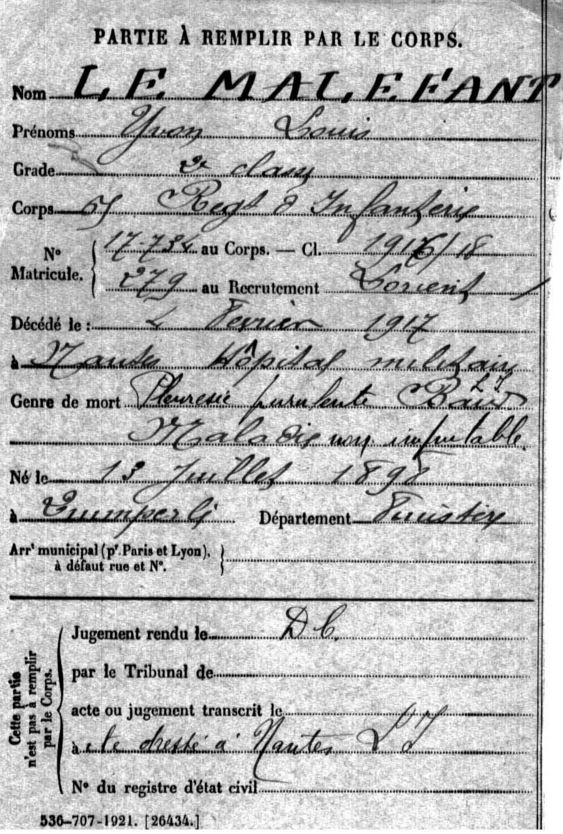 PARTIE À REMPLIR PAR LE CORPS.
Nom LE MALEFANT
Prénoms Yvon Louis
Grade 2e classe
Corps Regt d'Infanterie
No Matricule. 17.734 au Corps. — Cl. 1916/18
279 au Recrutement Lorient
Décédé le : Février 1917
à Nantes Hôpital militaire
Genre de mort Pleuresie purulente
Maladie non imputable
Né le 13 Juillet 1898
à Quimperlé Département Finistère
Arrt municipal (pr Paris et Lyon),
à défaut rue et No.
Cette partie
n'est pas à remplir
par le Corps.
Jugement rendu le DC
par le Tribunal de
acte ou jugement transcrit le
à été dressé à Nantes
No du registre d'état civil
536-707-1921. [26434.]